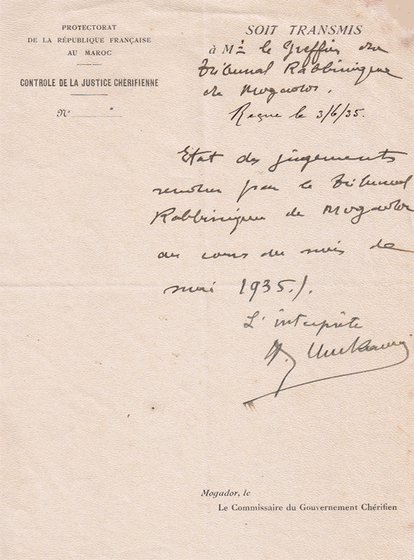 PROTECTORAT
DE LA RÉPUBLIQUE FRANÇAISE
AU MAROC
CONTROLE DE LA JUSTICE CHÉRIFIENNE
N°
SOIT TRANSMIS
à Mr le Greffier du
Tribunal Rabbinique
de Mogador.
Reçue le 3/6/35.
Etat des jugements
rendus par le Tribunal
Rabbinique de Mogador
au cours du mois de
mai 1935./.
L'interprète
Mogador, le
Le Commissaire du Gouvernement Chérifien